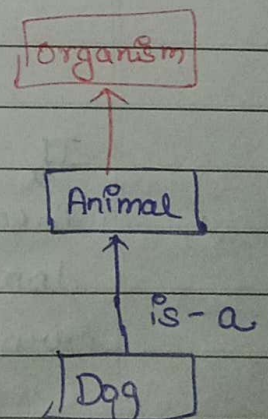 Organism
Animal
is-a
Dog